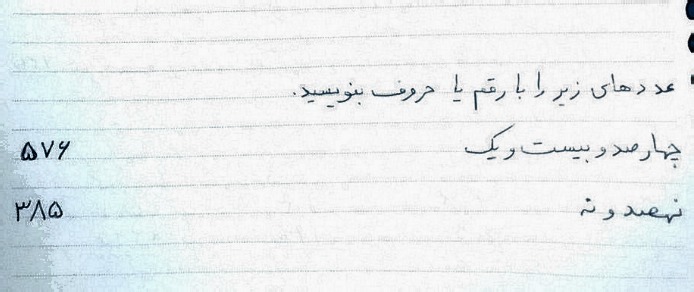 عددهای زیر را با رقم یا حروف بنویسید.
چهارصد و بیست و یک ۵۷۶
نهصد و نه ۳۸۵